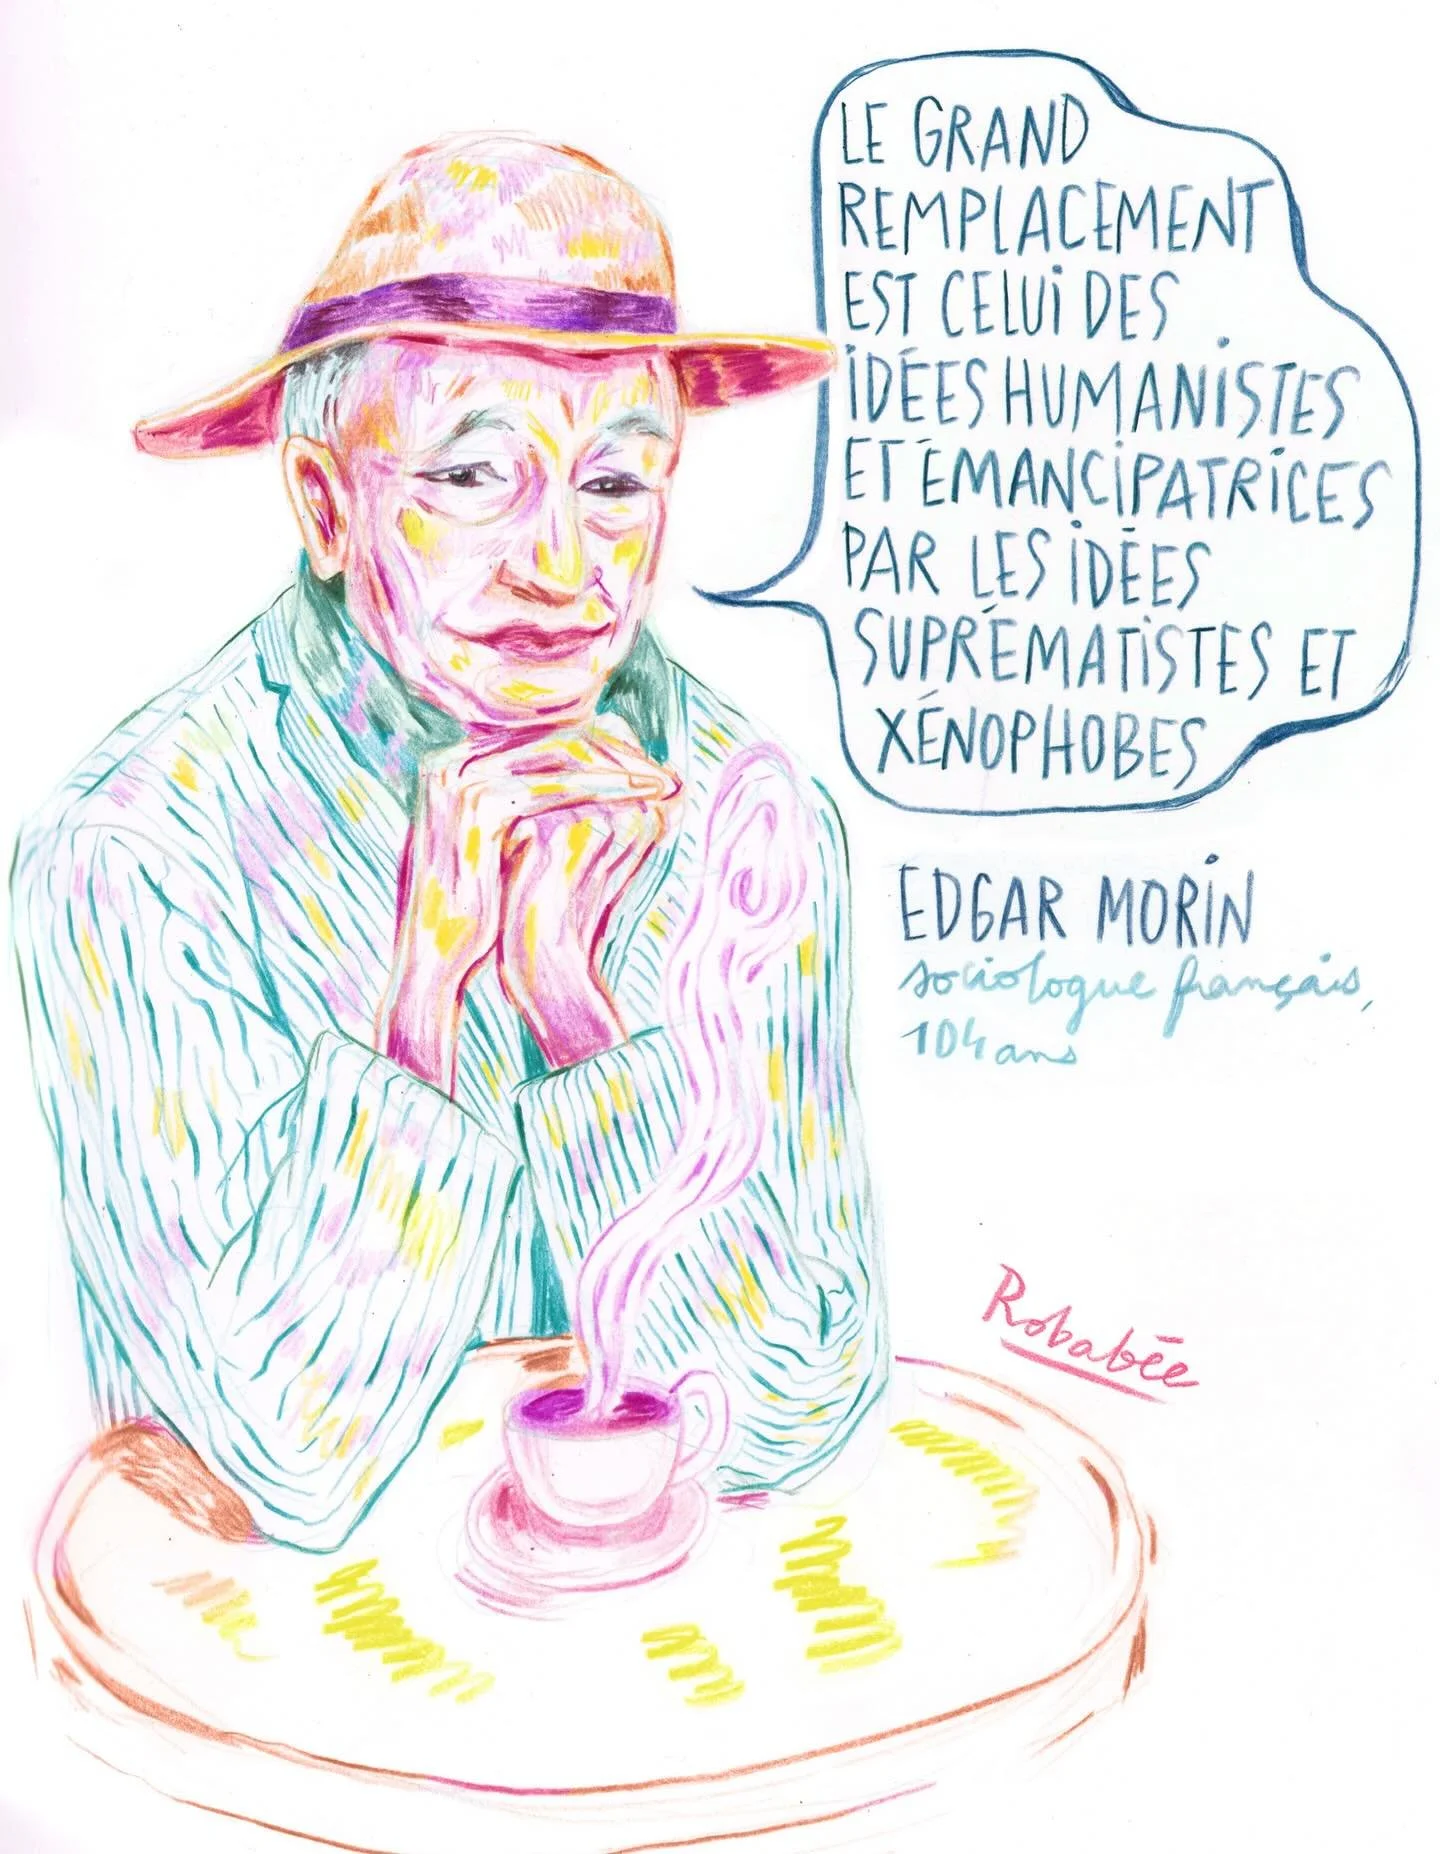 LE GRAND
REMPLACEMENT
EST CELUI DES
IDÉES HUMANISTES
ET ÉMANCIPATRICES
PAR LES IDÉES
SUPRÉMATISTES ET
XÉNOPHOBES
EDGAR MORIN
sociologue français,
104 ans
Robabée